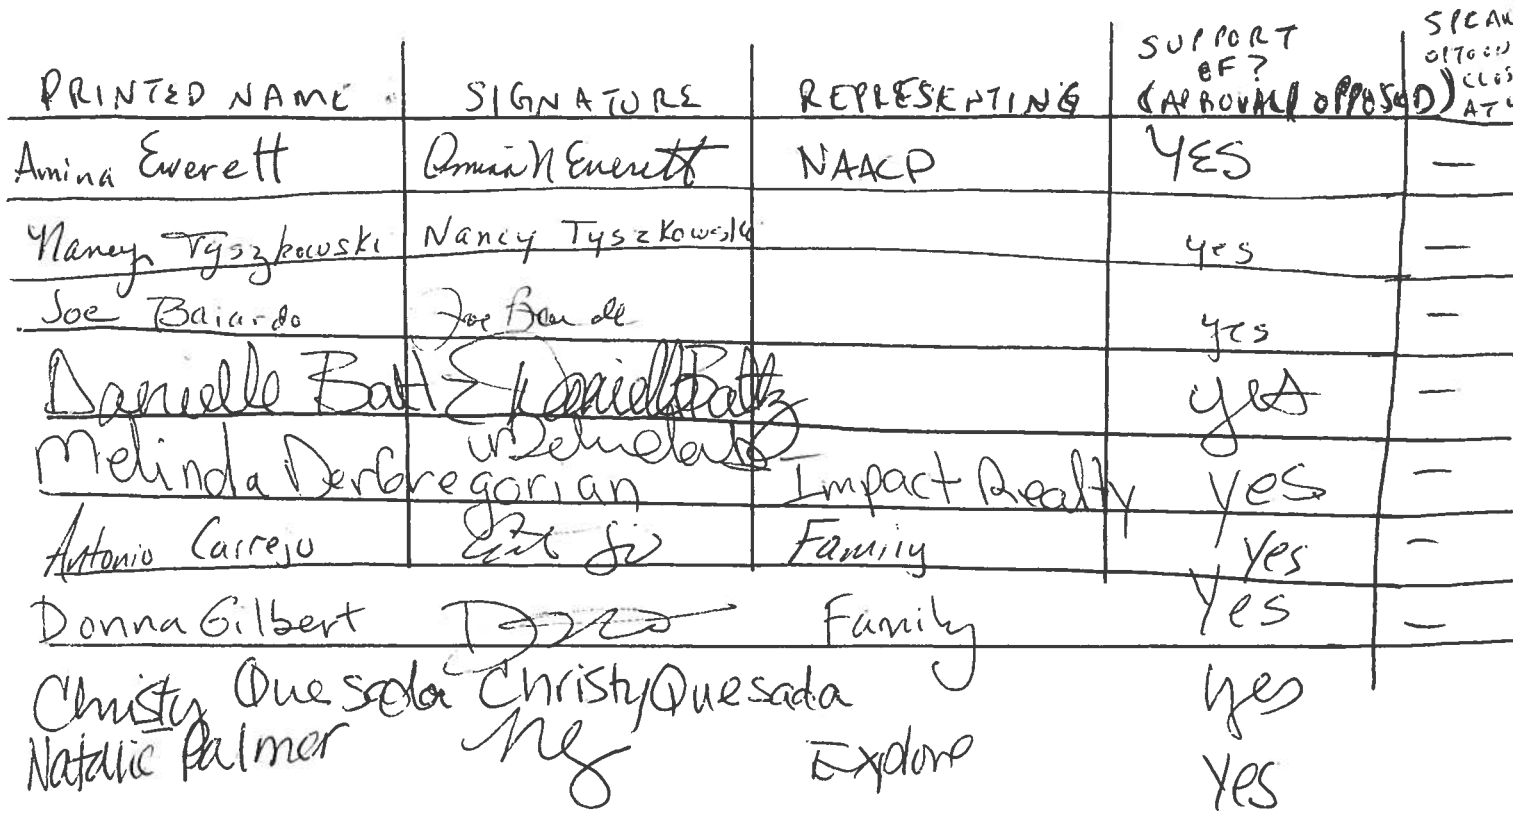 PRINTED NAME SIGNATURE REPRESENTING SUPPORT OF? (APPROVAL/OPPOSED) SPEAK
Amina Everett Amina N Everett NAACP YES —
Nancy Tyszkowski Nancy Tyszkowski yes —
Joe Baiardo Joe yes —
Danielle Baltz Danielle Baltz yes —
Melinda DerGregorian Impact Realty yes —
Antonio Carrejo Family Yes —
Donna Gilbert Family Yes —
Christy Quesada Christy Quesada yes
Natalie Palmer Explore Yes